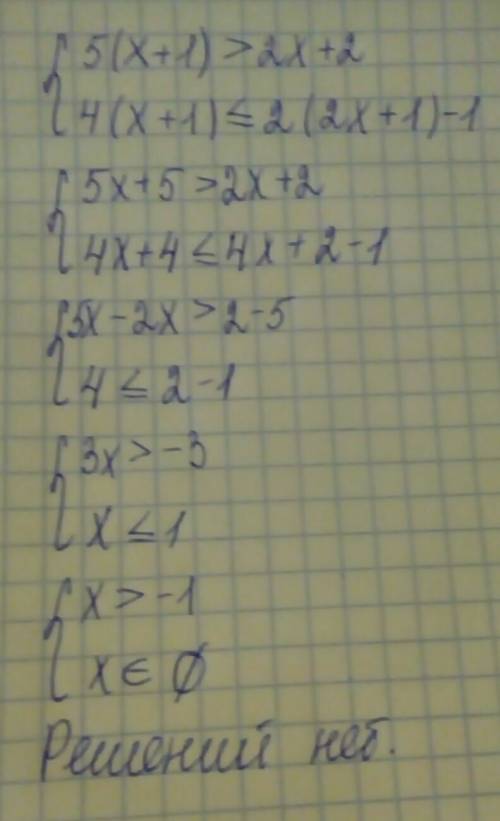 5(x+1) > 2x+2
4(x+1) ≤ 2(2x+1)-1
5x+5 > 2x+2
4x+4 ≤ 4x+2-1
5x-2x > 2-5
4 ≤ 2-1
3x > -3
x ≤ 1
x > -1
x ∈ ∅
Решений нет.